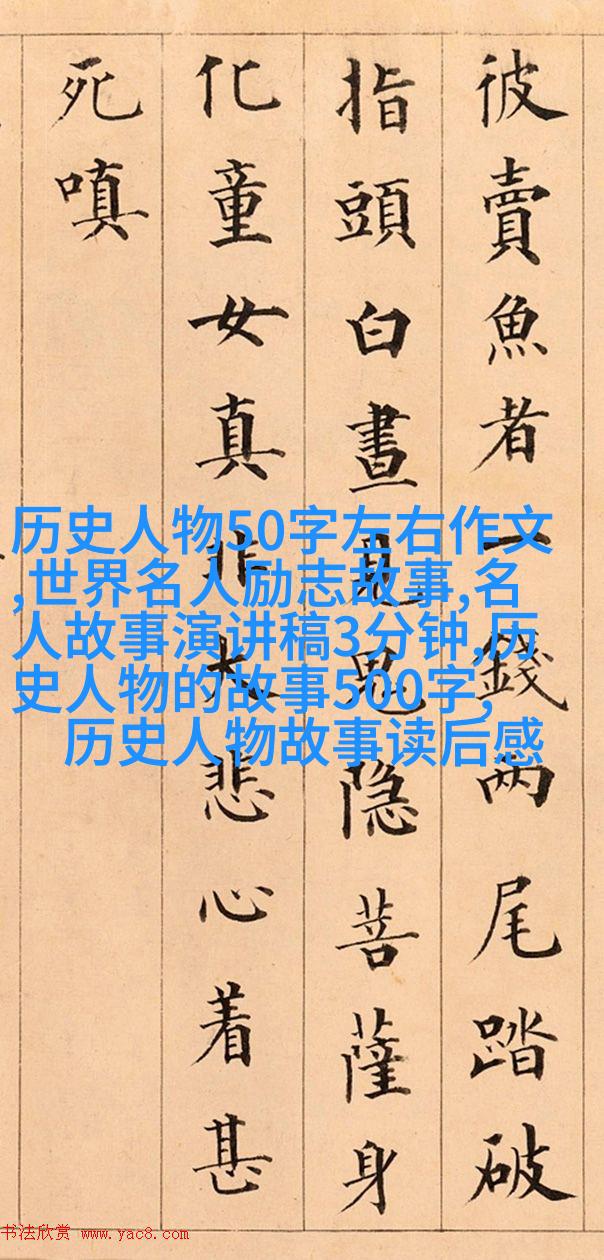 彼賣魚者一錢两尾踏破
指頭白晝見鬼隐菩薩身
化童女真非大悲心着甚
死嗔
历史人物50字左右作文
,世界名人励志故事,名
人故事演讲稿3分钟,历
史人物的故事500字,
历史人物故事读后感
书法欣赏 www.yac8.com